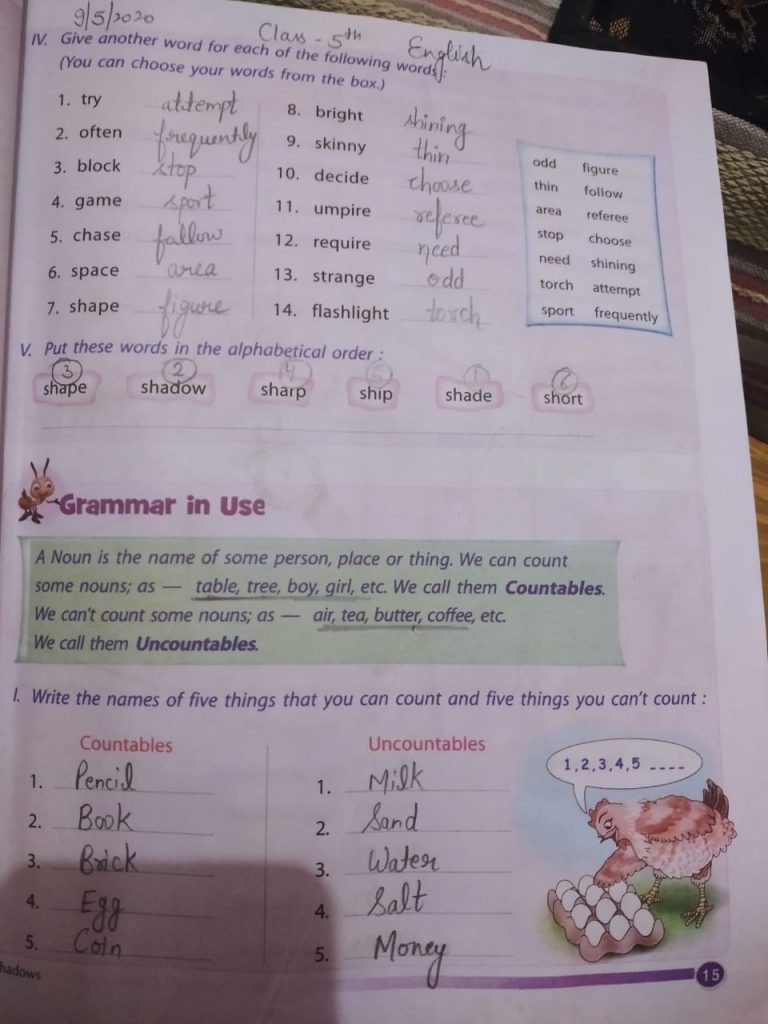 9/5/2020
Class - 5th English
IV. Give another word for each of the following words:
(You can choose your words from the box.)
1. try attempt
2. often frequently
3. block stop
4. game sport
5. chase fallow
6. space area
7. shape figure
8. bright shining
9. skinny thin
10. decide choose
11. umpire referee
12. require need
13. strange odd
14. flashlight torch
odd figure
thin follow
area referee
stop choose
need shining
torch attempt
sport frequently
V. Put these words in the alphabetical order :
3 2 4 5 1 6
shape shadow sharp ship shade short
Grammar in Use
A Noun is the name of some person, place or thing. We can count
some nouns; as — table, tree, boy, girl, etc. We call them Countables.
We can't count some nouns; as — air, tea, butter, coffee, etc.
We call them Uncountables.
I. Write the names of five things that you can count and five things you can't count :
Countables
1. Pencil
2. Book
3. Brick
4. Egg
5. Coin
Uncountables
1. Milk
2. Sand
3. Water
4. Salt
5. Money
1,2,3,4,5 ----
hadows
15